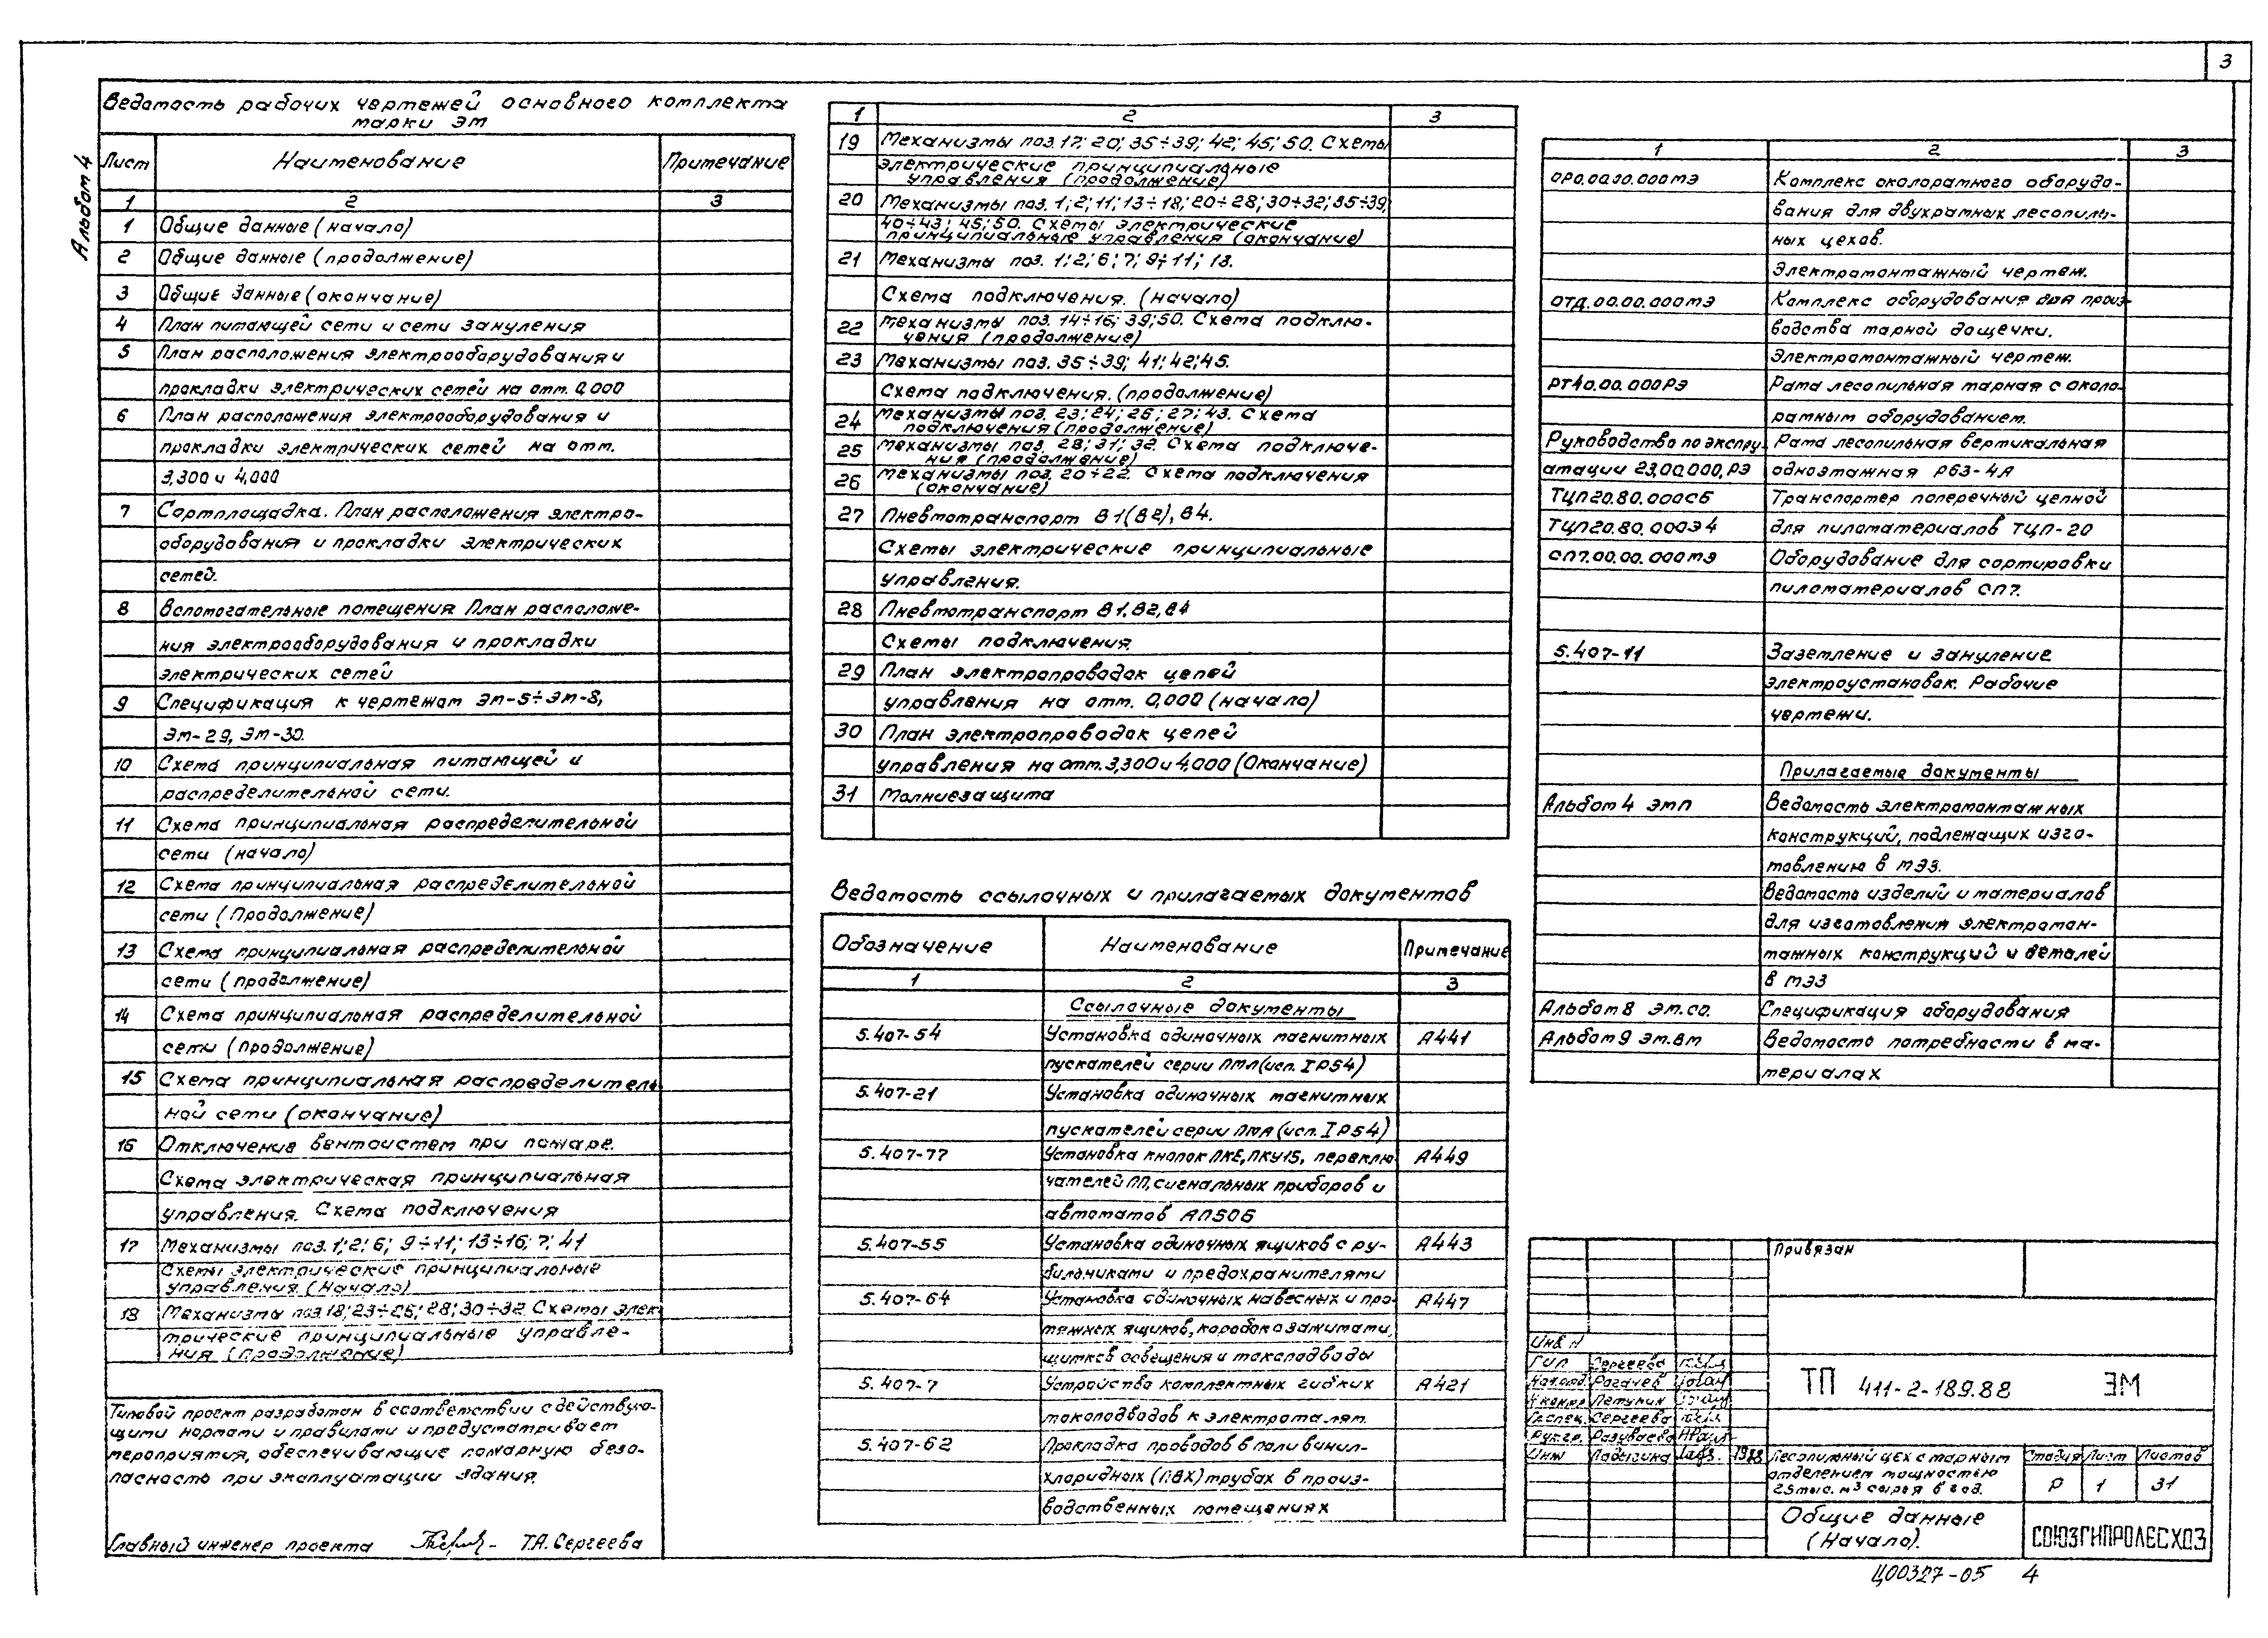 3
Альбом 4
Ведомость рабочих чертежей основного комплекта
марки ЭМ
Лист Наименование Примечание
1 2 3
1 Общие данные (начало)
2 Общие данные (продолжение)
3 Общие данные (окончание)
4 План питающей сети и сети зануления
5 План расположения электрооборудования и
прокладки электрических сетей на отм. 0,000
6 План расположения электрооборудования и
прокладки электрических сетей на отм.
3,300 и 4,000
7 Сортплощадка. План расположения электро-
оборудования и прокладки электрических
сетей.
8 Вспомогательные помещения План расположе-
ния электрооборудования и прокладки
электрических сетей
9 Спецификация к чертежам ЭМ-5÷ЭМ-8,
ЭМ-29, ЭМ-30.
10 Схема принципиальная питающей и
распределительной сети.
11 Схема принципиальная распределительной
сети (начало)
12 Схема принципиальная распределительной
сети (Продолжение)
13 Схема принципиальная распределительной
сети (продолжение)
14 Схема принципиальная распределительной
сети (продолжение)
15 Схема принципиальная распределитель
ной сети (окончание)
16 Отключение вентсистем при пожаре.
Схема электрическая принципиальная
управления. Схема подключения
17 Механизмы поз. 1; 2; 6; 9÷11; 13÷16; 7; 41
Схемы электрические принципиальные
управления (Начало)
18 Механизмы поз 18; 23÷26; 28; 30÷32. Схемы элек
трические принципиальные управле-
ния (продолжение)
Типовой проект разработан в соответствии с действую-
щими нормами и правилами и предусматривает
мероприятия, обеспечивающие пожарную безо-
пасность при эксплуатации здания.
Главный инженер проекта Т.А. Сергеева
1 2 3
19 Механизмы поз. 17; 20; 35÷39; 42; 45; 50. Схемы
электрические принципиальные
управления (продолжение)
20 Механизмы поз. 1; 2; 11; 13÷18; 20÷28; 30÷32; 35÷39;
40÷43; 45; 50. Схемы электрические
принципиальные управления (окончание)
21 Механизмы поз. 1; 2; 6; 7; 9÷11; 13.
Схема подключения. (начало)
22 Механизмы поз. 14÷16; 39; 50. Схема подклю-
чения (продолжение)
23 Механизмы поз. 35÷39; 41; 42; 45.
Схема подключения. (продолжение)
24 Механизмы поз. 23; 24; 26; 27; 43. Схема
подключения (продолжение)
25 Механизмы поз. 28; 31; 32. Схема подключе-
ния (продолжение)
26 Механизмы поз. 20÷22. Схема подключения
(окончание)
27 Пневмотранспорт В1(В2), В4.
Схемы электрические принципиальные
управления.
28 Пневмотранспорт В1, В2, В4
Схемы подключения.
29 План электропроводок цепей
управления на отм. 0,000 (начало)
30 План электропроводок цепей
управления на отм. 3,300 и 4,000 (Окончание)
31 Молниезащита
Ведомость ссылочных и прилагаемых документов
Обозначение Наименование Примечание
1 2 3
Ссылочные документы
5.407-54 Установка одиночных магнитных А441
пускателей серии ПМЛ (исп. IP54)
5.407-21 Установка одиночных магнитных
пускателей серии ПМА (исп. IP54)
5.407-77 Установка кнопок ПКЕ, ПКУ15, переклю А449
чателей ПП, сигнальных приборов и
автоматов АП50Б
5.407-55 Установка одиночных ящиков с ру- А443
бильниками и предохранителями
5.407-64 Установка одиночных навесных и про А447
тяжных ящиков, коробок с зажимами,
щитков освещения и токоподводы
5.407-7 Устройство комплектных гибких А421
токоподводов к электроталям.
5.407-62 Прокладка проводов в поливинил-
хлоридных (ПВХ) трубах в произ-
водственных помещениях
1 2 3
ОРО.00.00.000МЭ Комплекс околорамного оборудо-
вания для двухрамных лесопиль-
ных цехов.
Электромонтажный чертеж.
ОТД.00.00.000МЭ Комплекс оборудования для произ-
водства тарной дощечки.
Электромонтажный чертеж.
РТ40.00.000РЭ Рама лесопильная тарная с около-
рамным оборудованием.
Руководство по экспру- Рама лесопильная вертикальная
атации 23.00.000.РЭ одноэтажная Р63-4А
ТЦП20.80.000СБ Транспортер поперечный цепной
ТЦП20.80.000Э4 для пиломатериалов ТЦП-20
СП7.00.00.000МЭ Оборудование для сортировки
пиломатериалов СП7.
5.407-11 Заземление и зануление
электроустановок. Рабочие
чертежи.
Прилагаемые документы
Альбом 4 ЭМП Ведомость электромонтажных
конструкций, подлежащих изго-
товлению в МЭЗ.
Ведомость изделий и материалов
для изготовления электромон-
тажных конструкций и деталей
в МЭЗ
Альбом 8 ЭМ.СО. Спецификация оборудования
Альбом 9 ЭМ.ВМ Ведомость потребности в ма-
териалах
Привязан
Инв N
ГИП Сергеева
Нач.отд. Рогачев
Н контр Петунин
Гл.спец. Сергеева
Рук.гр. Разуваева
Инж Ладыгина 1988
ТП 411-2-189.88 ЭМ
Лесопильный цех с тарным
отделением мощностью
25 тыс. м³ сырья в год.
Стадия Лист Листов
Р 1 31
Общие данные
(Начало).
СОЮЗГИПРОЛЕСХОЗ
Ц00327-05 4